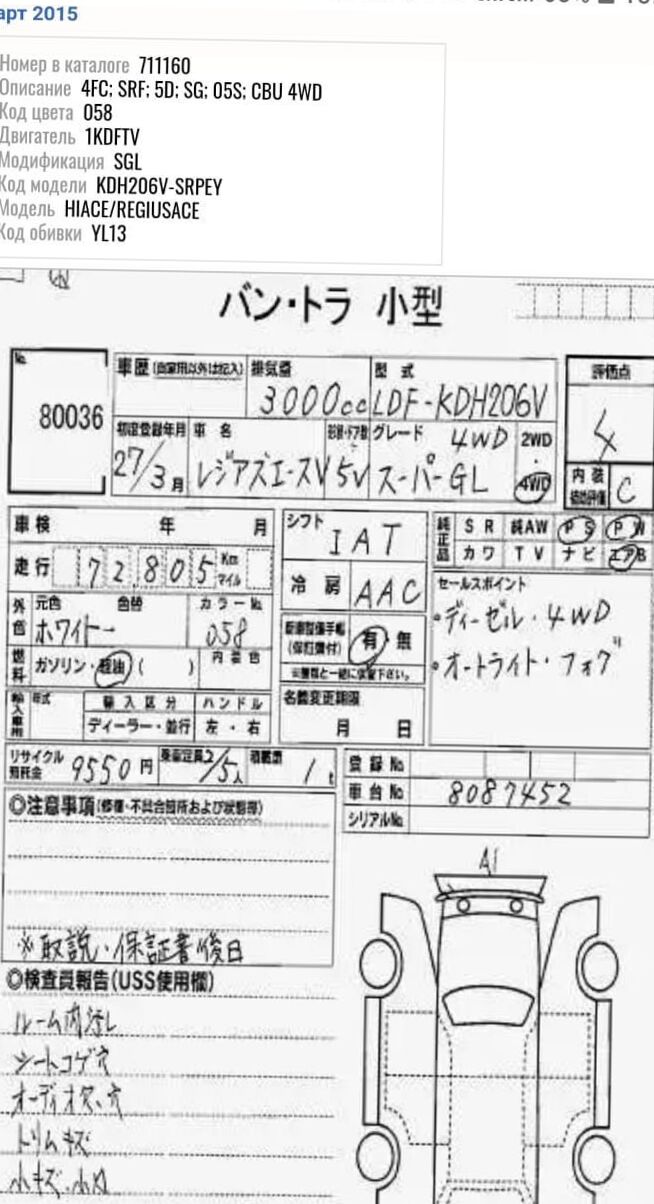 арт 2015
Номер в каталоге 711160
Описание 4FC; SRF; 5D; SG; 05S; CBU 4WD
Код цвета 058
Двигатель 1KDFTV
Модификация SGL
Код модели KDH206V-SRPEY
Модель HIACE/REGIUSACE
Код обивки YL13
バン・トラ 小型
No.
80036
車歴(自家用以外は記入)
排気量
3000cc
型式
LDF-KDH206V
評価点
4
初度登録年月
27/3月
車名
レジアスエースV
形状・ドア数
5V
グレード
4WD
スーパーGL
2WD
・
4WD
内装
補助評価
C
車検 年 月
シフト
IAT
純正品
SR 純AW PS PW
カワ TV ナビ エアB
走行 72,805 Km マイル
冷房 AAC
セールスポイント
・ディーゼル・4WD
・オートライト・フォグ
外色
元色 色替
ホワイト→
カラーNo.
058
新車整備手帳
(保証書付)
有・無
※書類と一緒に保管下さい。
燃料
ガソリン・軽油( )
内装色
名義変更期限
月 日
輸入車用
年式
輸入区分
ディーラー・並行
ハンドル
左・右
リサイクル
預託金
9550円
乗車定員 2/5人
積載量 1t
登録No
車台No 8087452
シリアルNo
◎注意事項(修復・不具合箇所および状態等)
※取説・保証書後日
◎検査員報告(USS使用欄)
ルーム内汚レ
シートコゲ穴
オーディオ欠、穴
トリムキズ
小キズ、小凹
A1